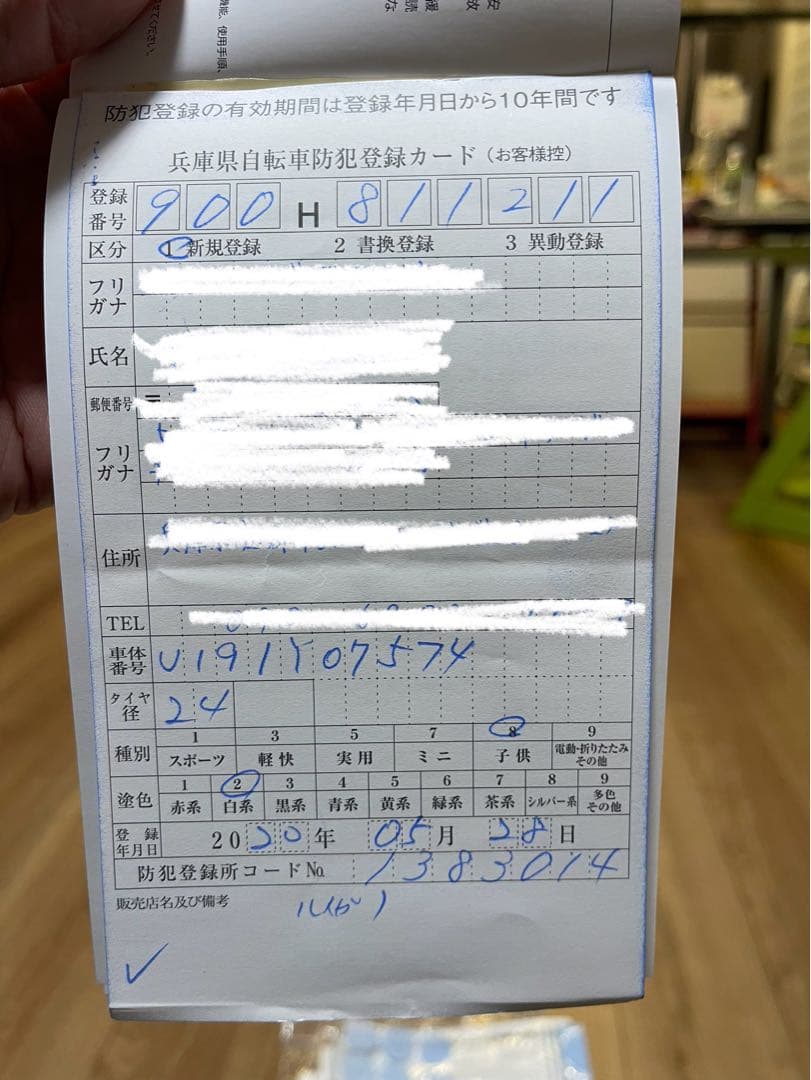 安
故
援
読
な
機能、使用手順、
せてください。
防犯登録の有効期間は登録年月日から10年間です
兵庫県自転車防犯登録カード(お客様控)
登録番号 900 H 811211
区分 1 新規登録 2 書換登録 3 異動登録
フリガナ
氏名
郵便番号 〒
フリガナ
住所
TEL
車体番号 U191Y07574
タイヤ径 24
種別 1 スポーツ 3 軽快 5 実用 7 ミニ 8 子供 9 電動・折りたたみその他
塗色 1 赤系 2 白系 3 黒系 4 青系 5 黄系 6 緑系 7 茶系 8 シルバー系 9 多色その他
登録年月日 2020年 05月 28日
防犯登録所コード№ 1383014
販売店名及び備考